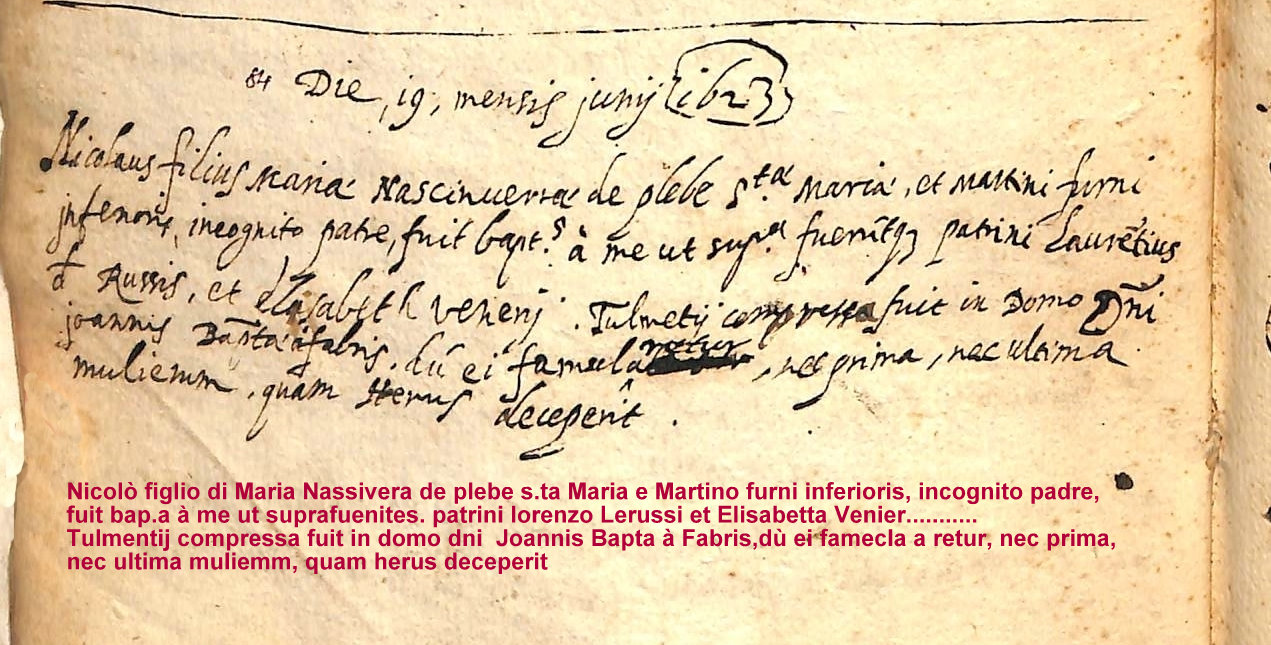 84 Die, 19, mensis junij 1623
Nicolaus filius Mariæ Nascinueræ de plebe S.tæ Mariæ, et Martini furni
inferioris, incognito patre, fuit bapt.s à me ut sup.a fuerūtq3 patrini Laurētius
Russis, et Elisabeth Venerij. Tulmetij compressa fuit in Domo Dn̄i
joannis Bap̄tæ à fabris. dū ei famula retur, nec prima, nec ultima
muliemm, quam Herus deceperit.
Nicolò figlio di Maria Nassivera de plebe s.ta Maria e Martino furni inferioris, incognito padre,
fuit bap.a à me ut suprafuenites. patrini lorenzo Lerussi et Elisabetta Venier...........
Tulmentij compressa fuit in domo dni Joannis Bapta à Fabris,dù ei famecla a retur, nec prima,
nec ultima muliemm, quam herus deceperit